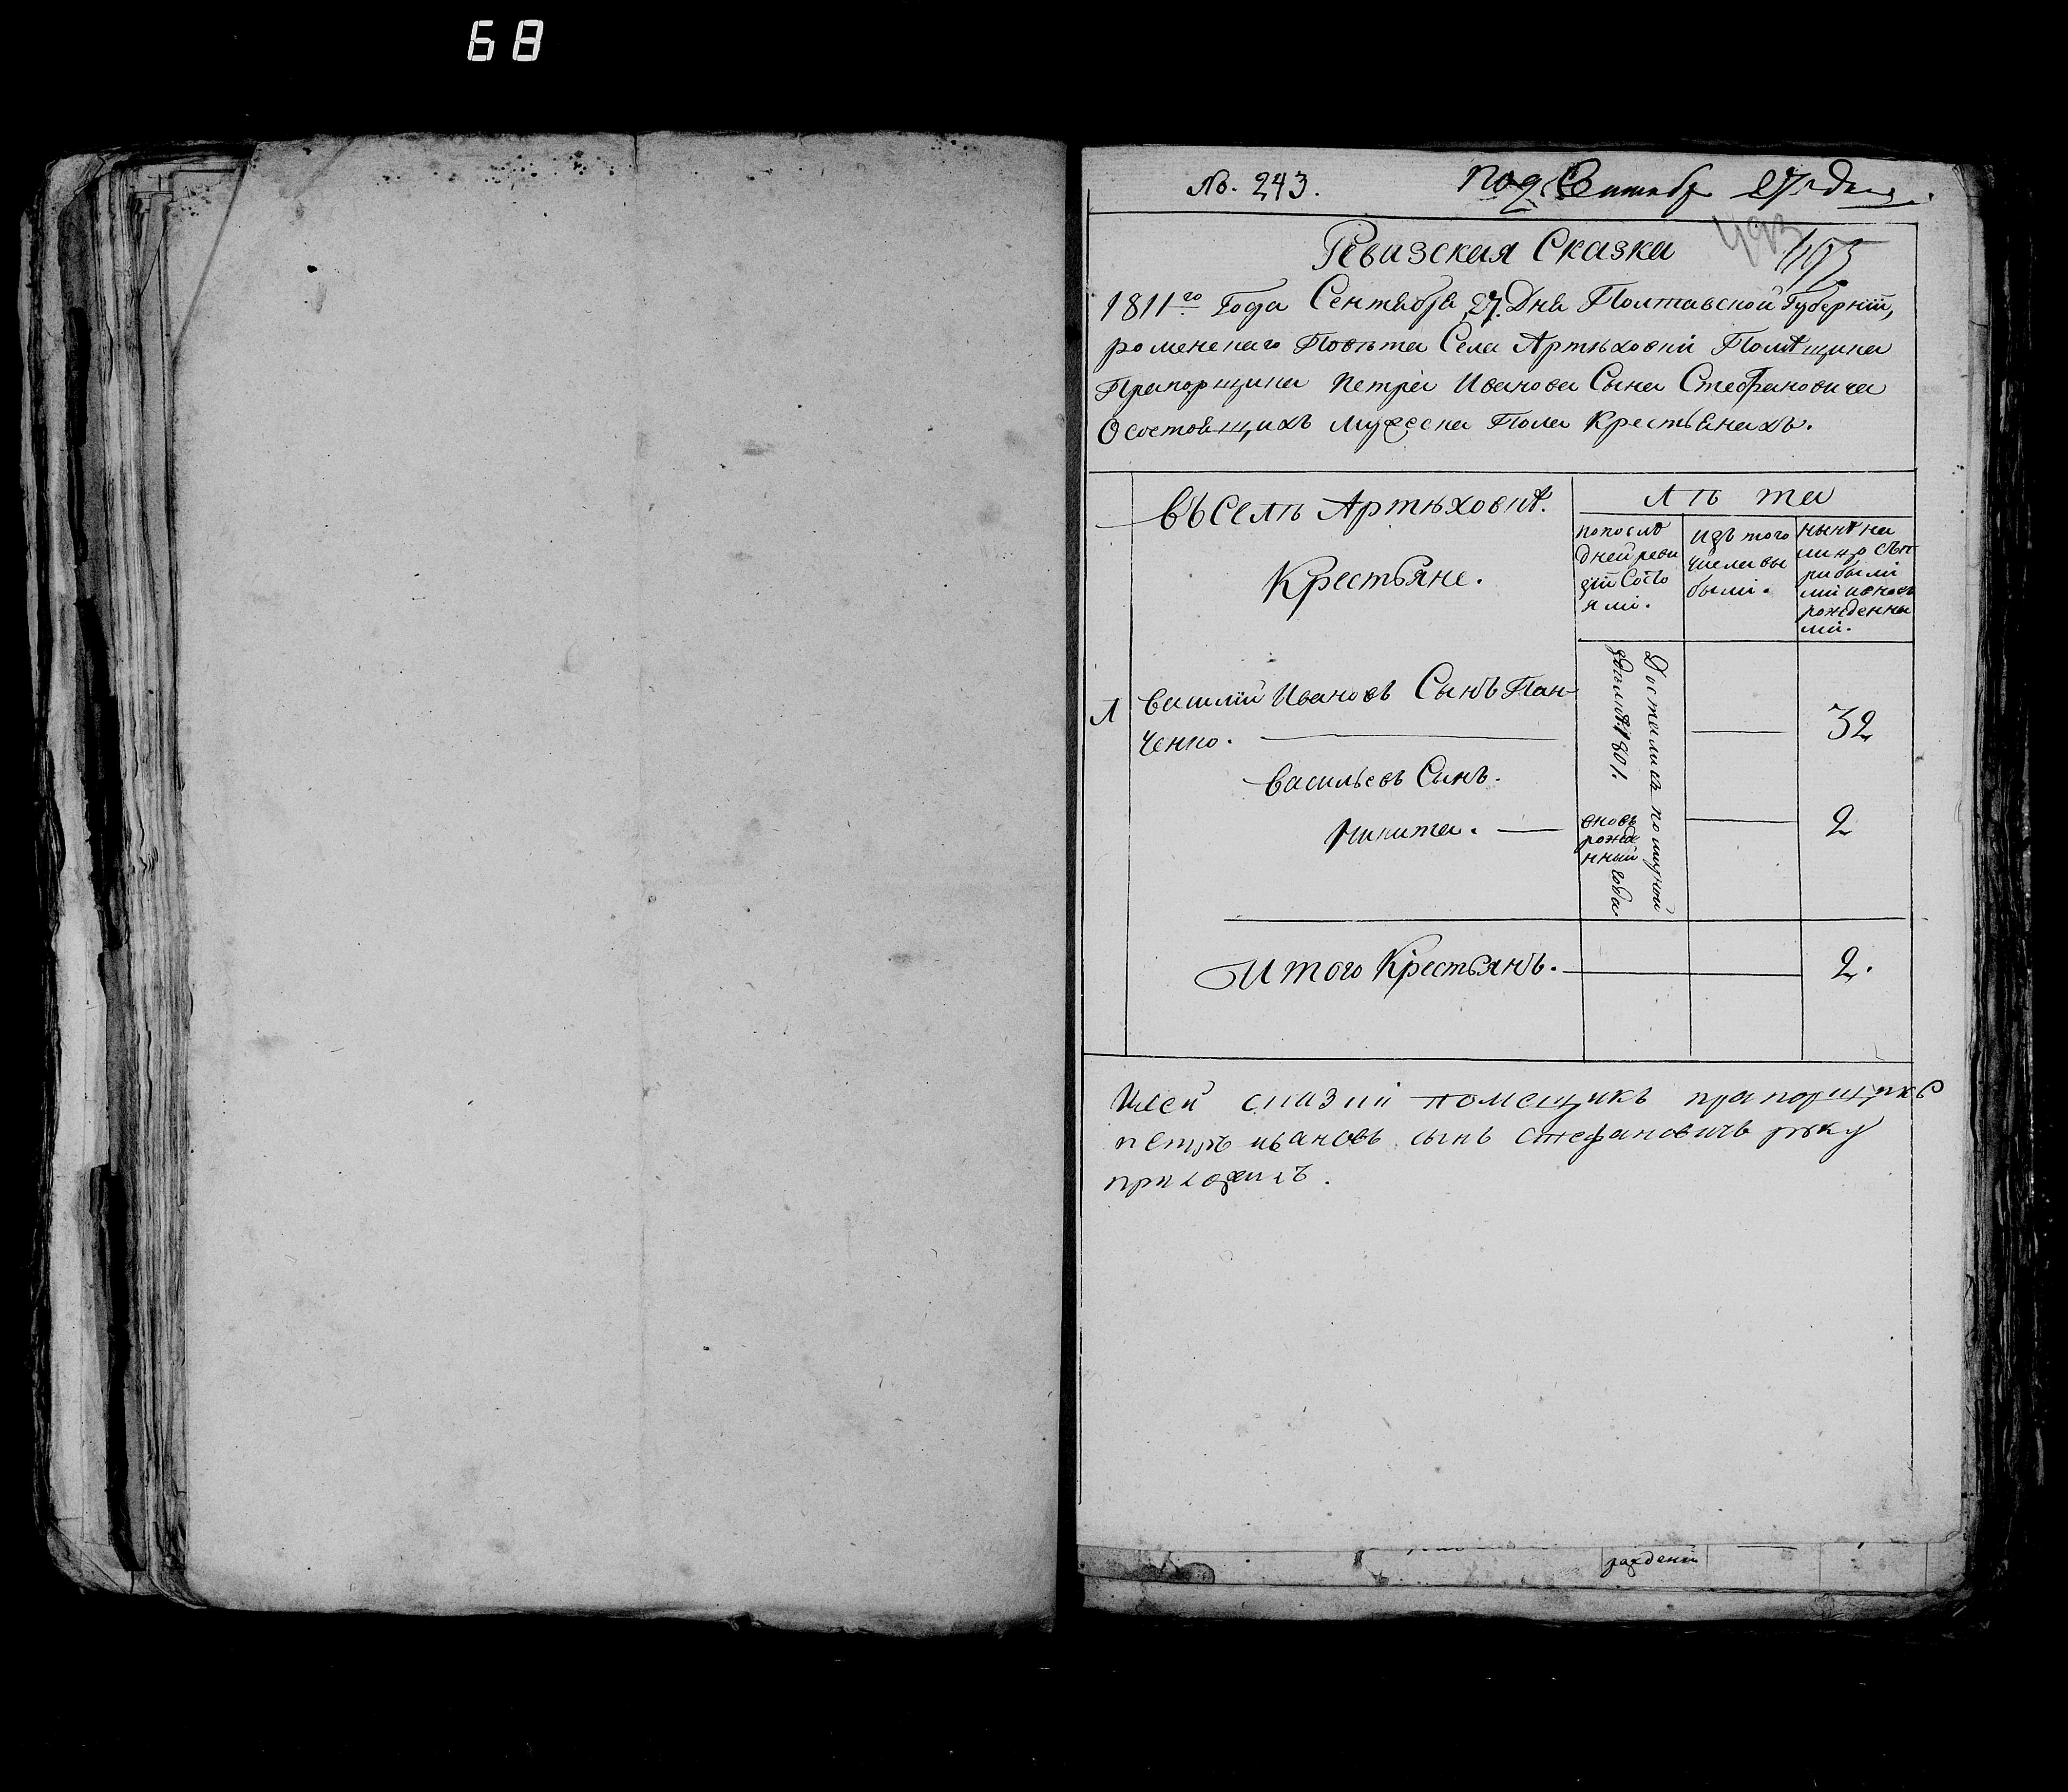 68
№. 243.
под. Сентябр 27 дня.
493
495
Ревизская Сказка
1811го Года Сентября 27. Дня Полтавской Губерніи,
роменскаго Повѣта Села Артюховки Помѣщика
Прапорщика Петра Иванова Сына Стефановича
О состоящихъ мужеска Пола Крестьянахъ.
въ Селѣ Артюховкѣ.
Крестьяне.
Лѣта
попослѣ
дней реви
зіи Состо
яли.
изъ того
числа вы
были.
нынѣ на
лицо съп
рибыли
ми ивновь
рожденны
ми.
1
Василій Ивановъ Сынъ Пан
ченко.
Досталися по мирной
здѣлкѣ 1801. года
32
Васильевъ Сынъ.
Никита.
вновь
рожде
нный
2
Итого Крестьянъ.
2.
Ксей сказки помещикъ прапорщикъ
петръ ивановъ сынъ стефановичъ руку
приложилъ.
рождений